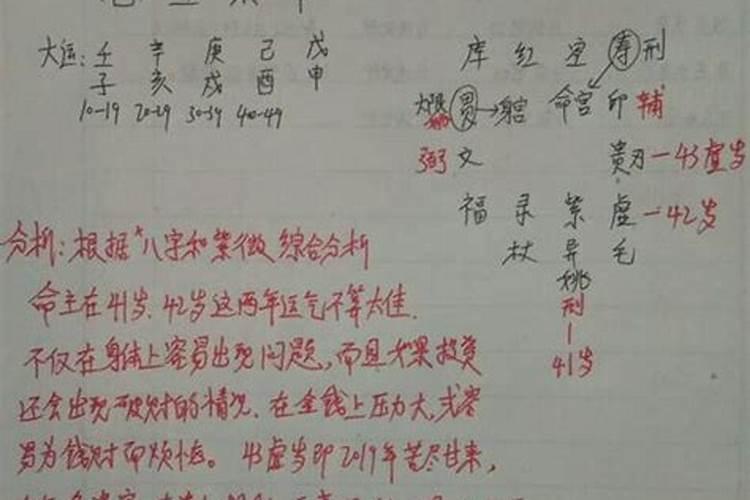 大运: 壬 辛 庚 己 戊
子 亥 戌 酉 申
10-19 20-29 30-39 40-49
库 红 空 寿 刑
大限 贯→ 命宫 印 辅
弼 文 贵 刃-43虚岁
福 录 紫 虚-42岁
杖 异 毛
姚
刑
41岁
分析:根据"八字和紫微综合分析
命主在41岁、42岁这两年运气不算太佳.
不仅在身体上容易出现问题,而且如果投资
还会出现破财的情况.在金钱上压力大,或容
易为钱财而烦恼。43虚岁即2019年苦尽甘来,